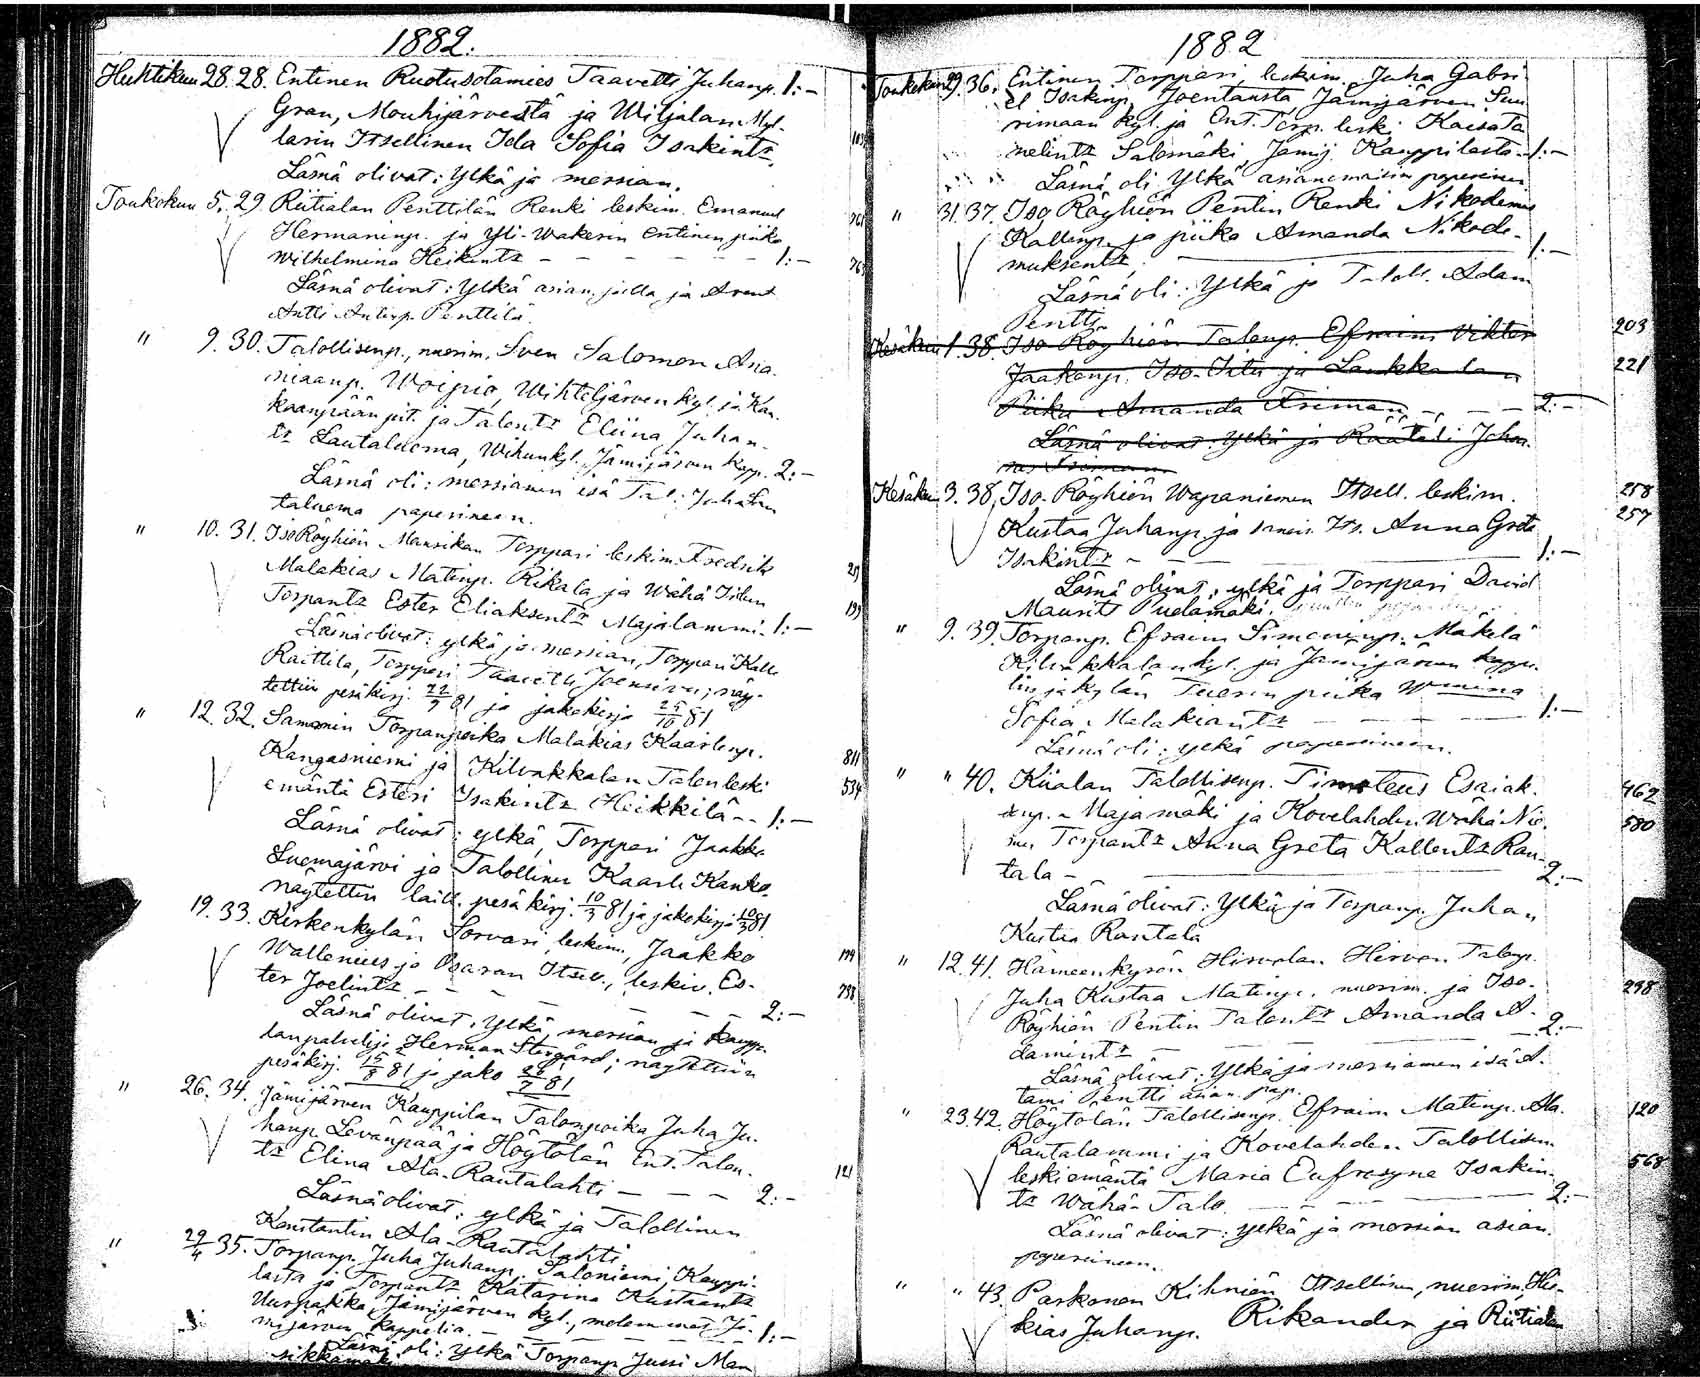 1882.
Huhtikuu 28. 28. Entinen Ruotusotamies Taavetti Juhanp. 1:-
Gran, Mouhijärvestä ja Wiljalan Myl-
larin Itsellinen Ida Sofia Isakintr.
Läsnä olivat: Ylkä ja morsian.
Toukokuu 5. 29. Riitialan Penttilän Renki leskim. Emanuel
Hermaninp. ja Yli-Wakerin entinen piika
Wilhelmina Heikintr - - - - - - 1:-
Läsnä olivat: Ylkä asian. ja
Antti Antinp. Penttilä.
" 9. 30. Talollisenp., nuorim. Sven Salomon Ana-
niaanp. Woipio, Wihteljärven kyl. ja Kan-
kaanpään pit. ja Talontr Eliina Juhan-
tr Lautaluoma, Wihunkyl. Jämijärven kapp. 2:-
Läsnä oli: morsiamen isä Tal. Juha Lau-
taluoma paperineen.
" 10. 31. Iso Röyhiön Mansikan Torppari leskim. Fredrik
Malakias Matinp. Rikala ja Wähä Iilun
Torpantr Ester Eliaksentr Majalammi. 1:-
Läsnä olivat: ylkä ja morsian, Torppari Kalle
Raittila, Torppari Taavetti Joensivu; näy-
tettiin pesäkirj. 22/9 81 ja jakokirja 29/10 81
" 12. 32. Sammin Torpanpoika Malakias Kaarlenp.
Kangasniemi ja Kilvakkalan Talon leski
emäntä Esteri Isakintr Heikkilä - - 1:-
Läsnä olivat: ylkä, Torppari Jaakko
Luomajärvi ja Talollinen Kaarle Kanko
näytettiin laill. pesäkirj. 10/3 81 ja jakokirja 10/3 81
19. 33. Kirkonkylän Sorvari, leskim., Jaakko
Wallenius ja Osaran Itsell., leskiv. Es-
ter Joelintr - - - - - - 2:-
Läsnä olivat: Ylkä, morsian ja kaup-
panpalvelija Herman Stergård; näytettiin
pesäkirj. 15/8 81 ja jako 26/7 81
" 26. 34. Jämijärven Kauppilan Talonpoika Juha Ju-
hanp. Levänpää ja Höytölän Ent. Talon-
tr Elina Ala-Rautalahti - - - 2:-
Läsnä olivat: ylkä ja Talollinen
Konstantin Ala-Rautalahti
" 29/4 35. Torpanp. Juha Juhanp. Saloniemi, Kauppi-
lasta ja Torpantr Katarina Kustaantr
Uurpakka, Jämijärven kyl., molemmat Jä-
mijärven kappelia. - - - - - 1:-
Läsnä oli: Ylkä Torpanp. Jussi Man
sikkamäki
103
761
765
29
199
811
534
799
738
121
1882
Toukokuu 29. 36. Entinen Torppari, leskim. Juha Gabri-
el Isakinp. Joentausta, Jämijärven Suu
rimaan kyl. ja Ent. Torp. leski Kaisata
melintr Salomäki, Jämij. Kauppilasta. 1:-
Läsnä oli Ylkä asianomaisin paperineen
" 31. 37. Iso Röyhiön Pentin Renki Nikodemus
Kallenp. ja piika Amanda Nikode-
muksentr, 1:-
Läsnä oli: Ylkä ja Taloll. Adam
Pentti.
Kesäkuu 1. 38. Iso Röyhiön Talonp. Efraim Viktor 203
Jaakonp. Iso-Iitu ja Laukkalan 221
Piika Amanda Friman - - - 2:-
Läsnä olivat: ylkä ja Räätäli Johan-
nes Friman
Kesäkuu 3. 38. Iso-Röyhiön Wapaniemen Itsell. leskim. 258
Kustaa Juhanp. ja Its. Anna Greta 257
Isakintr - 1:-
Läsnä olivat: ylkä ja Torppari David
Maurits Pudamäki.
" 9. 39. Torpanp. Efraim Simoninp. Mäkelä
Kilvakkalan kyl. ja Jämijärven kappe-
lin ja kylän Tuorin piika Wmina
Sofia Malakiantr - - - - 1:-
Läsnä oli: ylkä paperineen.
" " 40. Kiialan Talollisenp. Timoteus Esaiak- 462
senp. Majamäki ja Kovelahden Wähä Nie- 580
men Torpantr Anna Greta Kallentr Ran-
tala - 2:-
Läsnä olivat: Ylkä ja Torpanp. Juhan
Kustaa Rantala
" 12. 41. Hämeenkyrön Hirvolan Hirvon Talonp.
Juha Kustaa Matinp. nuorim. ja Iso- 298
Röyhiön Pentin Talontr Amanda A-
damintr - - - 2:-
Läsnä olivat: Ylkä ja morsiamen isä A-
tami Pentti asian. pap.
" 23. 42. Höytölän Talollisenp. Efraim Matinp. Ala- 120
Rautalammi ja Kovelahden Talollisen
leskiemäntä Maria Eufrosyne Isakin- 568
tr Wähä-Talo. - - - 2:-
Läsnä olivat: ylkä ja morsian asian.
paperineen.
" " 43. Parkanon Kihniön Itsellinen, nuorim. His-
kias Juhanp. Rikander ja Riitialan